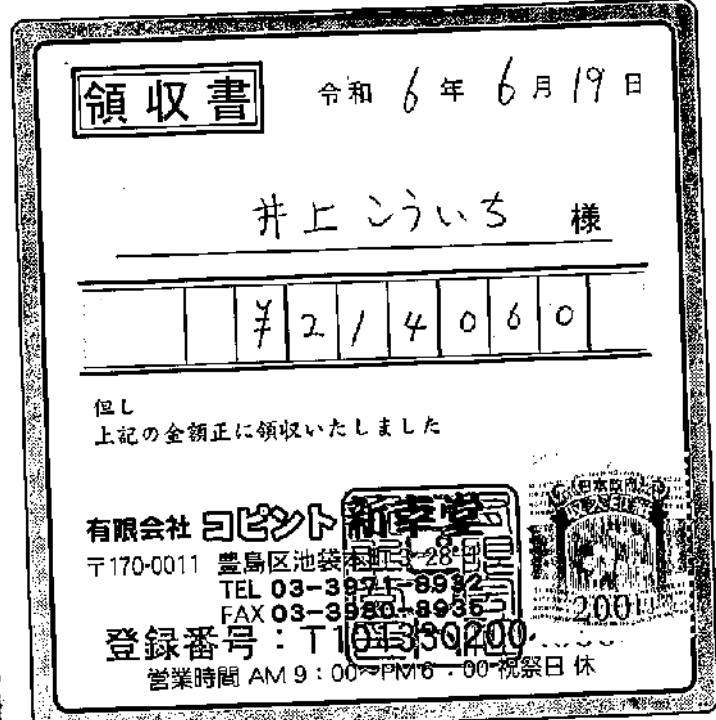 領収書
令和 6 年 6 月 19 日
井上こういち 様
¥214060
但し
上記の金額正に領収いたしました
有限会社 コピント 新幸堂
〒170-0011 豊島区池袋本町3-28-1
TEL 03-3971-8932
FAX 03-3980-8935
登録番号:T101330200
営業時間 AM 9:00〜PM 6:00 祝祭日 休
日本政府
収入印紙
200